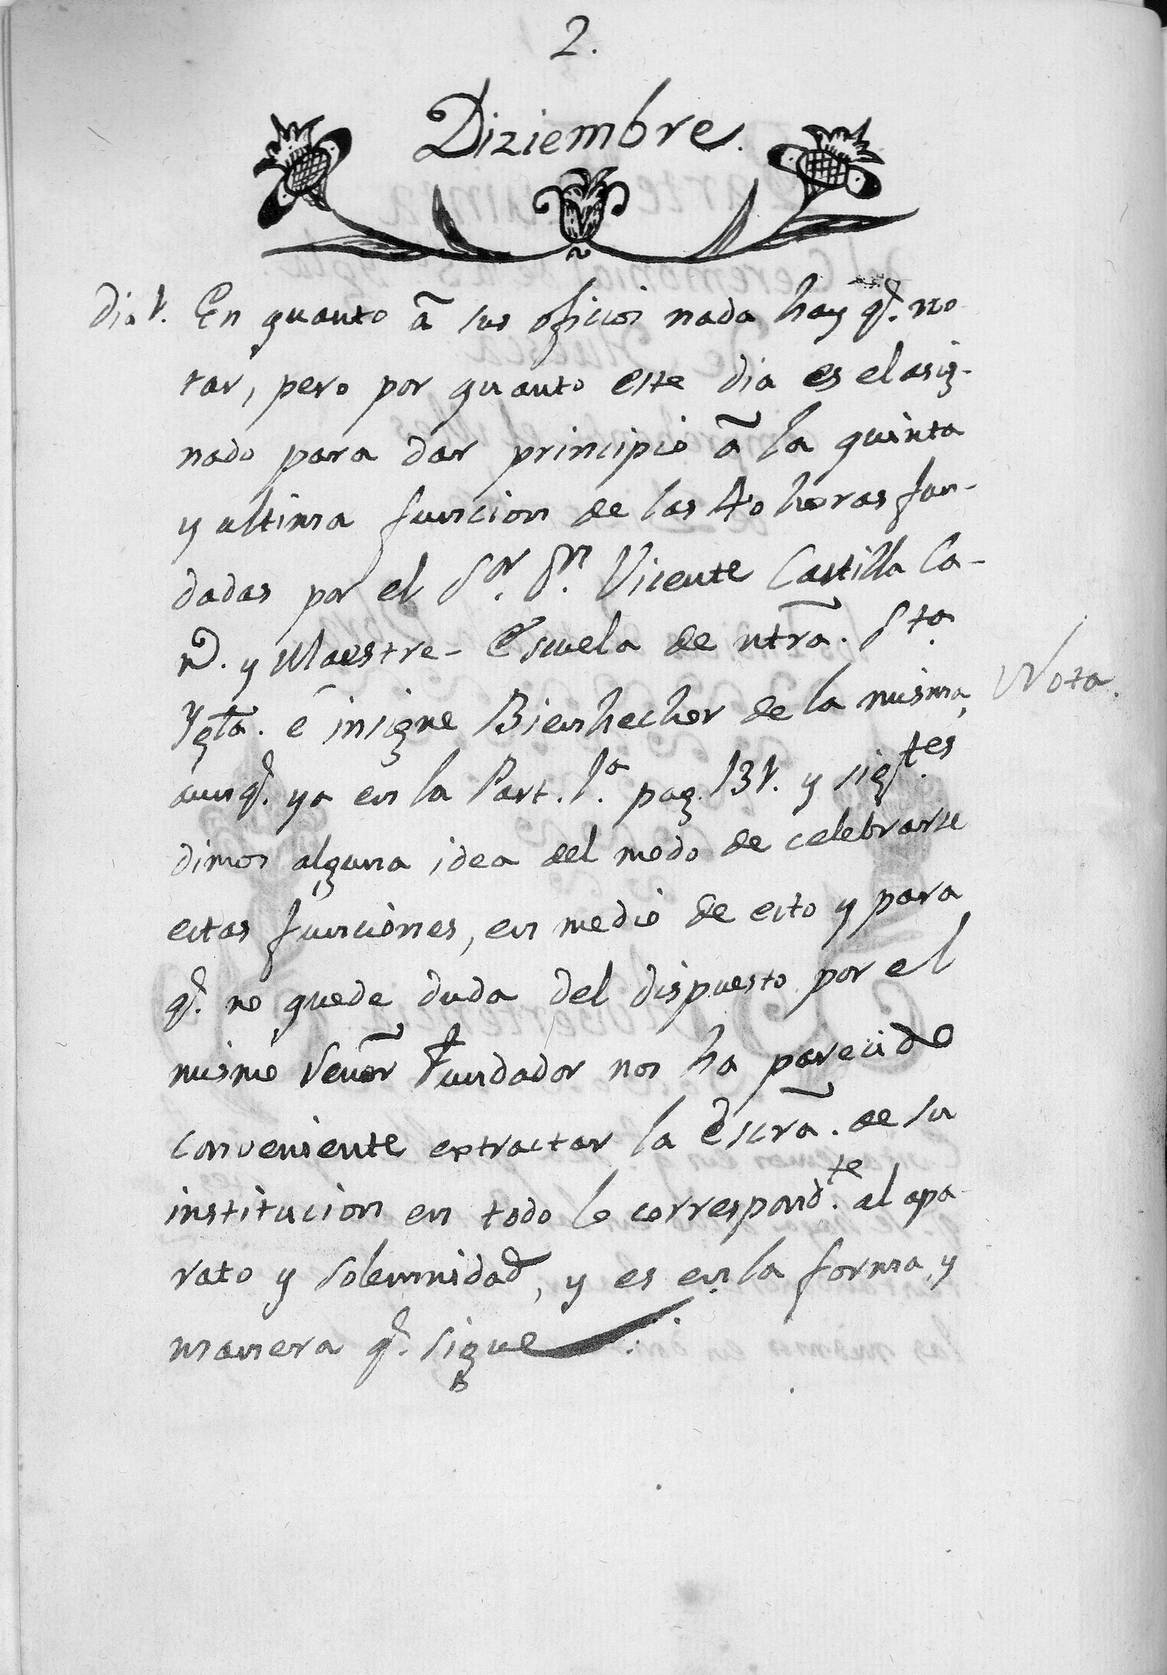 2.
Diziembre.
Dia 1. En quanto â sus oficios nada hay q.e no-
tar, pero por quanto este dia es el asig-
nado para dar principio â la quinta
y ultima funcion de las 40 horas fun-
dadas por el S.or D.n Vicente Castilla Ca-
n.o y Maestre-Escuela de ntra. S.ta
Ygla. é insigne Bienhechor de la misma, Nota.
aunq.e ya en la Part. 1.a pag. 131. y sig.tes
dimos alguna idea del modo de celebrarse
estas funciones, en medio de esto y para
q.e no quede duda del dispuesto por el
mismo Señor Fundador nos ha parecido
conveniente extractar la Escra. de su
institucion en todo lo correspond.te al apa-
rato y solemnidad, y es en la forma, y
manera q.e sigue